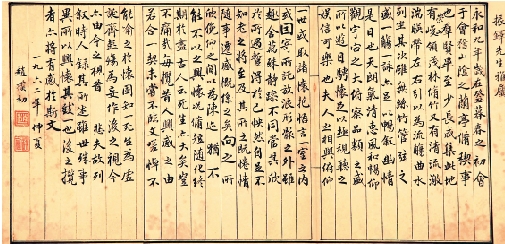 先生雅屬
永和九年歲在癸丑暮春之初會
于會稽山陰之蘭亭脩稧事
也羣賢畢至少長咸集此地
有崇山峻領茂林脩竹又有清流激
湍暎帶左右引以為流觴曲水
列坐其次雖無絲竹管弦之
盛一觴一詠亦足以暢敘幽情
是日也天朗氣清惠風和暢仰
觀宇宙之大俯察品類之盛
所以遊目騁懷足以極視聽之
娛信可樂也夫人之相與俯仰
一世或取諸懷抱悟言一室之內
或因寄所託放浪形骸之外雖
趣舍萬殊靜躁不同當其欣
於所遇暫得於己快然自足不
知老之將至及其所之既惓情
隨事遷感慨係之矣向之所
欣俛仰之間以為陳迹猶不
能不以之興懷況脩短隨化終
期於盡古人云死生亦大矣豈
不痛哉每攬昔人興感之由
若合一契未嘗不臨文嗟悼不
能喻之於懷固知一死生為虛
誕齊彭殤為妄作後之視今
亦由今之視昔悲夫故列
敘時人錄其所述雖世殊事
異所以興懷其致一也後之攬
者亦將有感於斯文
一九六二年仲夏
趙樸初